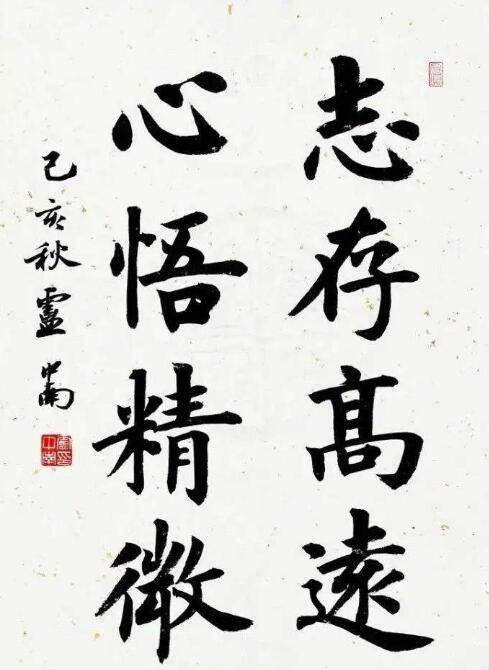 志存高遠
心悟精微
己亥秋盧中南